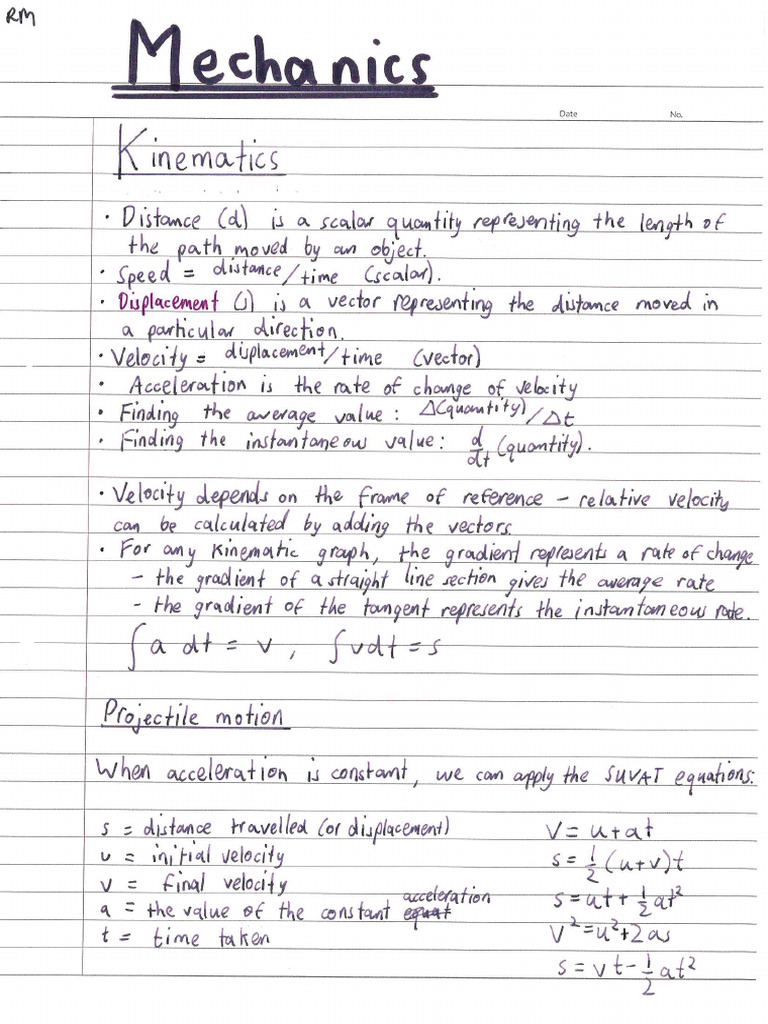 RM
Mechanics
Date No.
Kinematics
· Distance (d) is a scalar quantity representing the length of
the path moved by an object.
· Speed = distance/time (scalar).
· Displacement (s) is a vector representing the distance moved in
a particular direction.
· Velocity = displacement/time (vector)
· Acceleration is the rate of change of velocity
· Finding the average value: Δ(quantity)/Δt
· Finding the instantaneous value: d/dt (quantity).
· Velocity depends on the frame of reference – relative velocity
can be calculated by adding the vectors.
· For any kinematic graph, the gradient represents a rate of change
– the gradient of a straight line section gives the average rate
– the gradient of the tangent represents the instantaneous rate.
∫a dt = v, ∫vdt = s
Projectile motion
When acceleration is constant, we can apply the SUVAT equations:
s = distance travelled (or displacement) v = u+at
u = initial velocity s = 1/2 (u+v)t
v = final velocity s = ut + 1/2 at²
a = the value of the constant acceleration v² = u²+2as
t = time taken s = vt – 1/2 at²